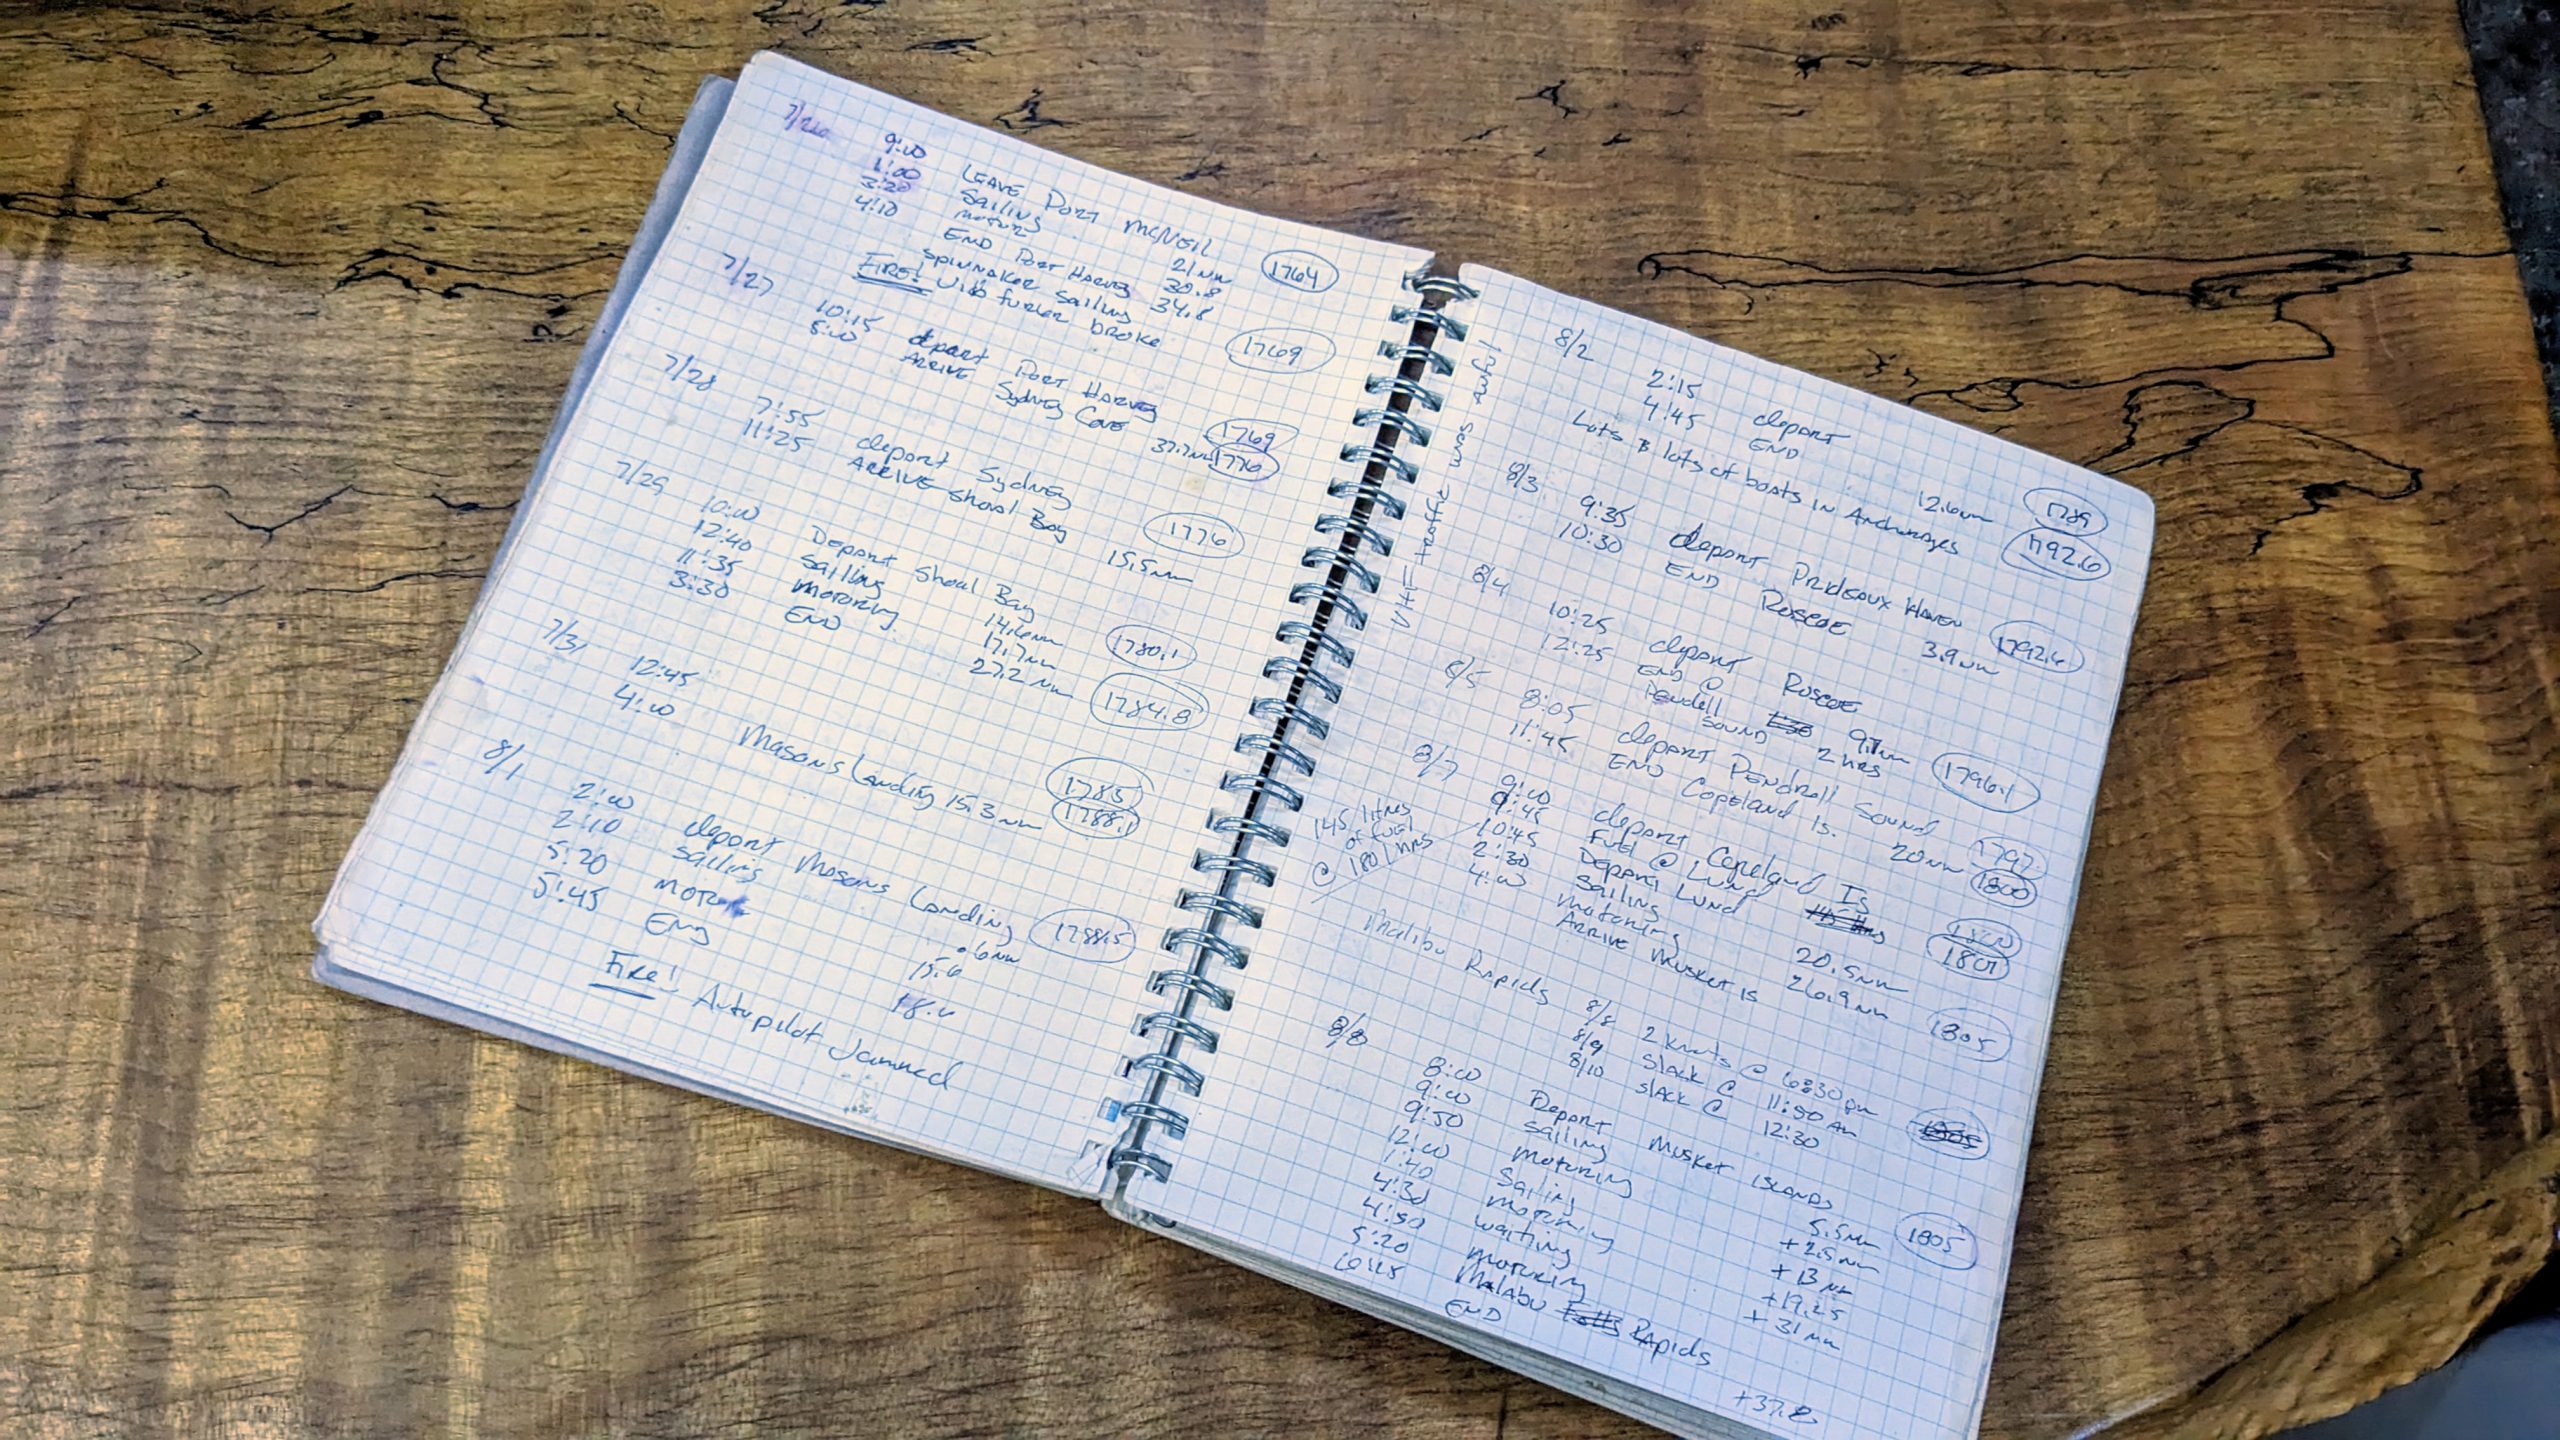 7/26 9:00 LEAVE PORT MCNEIL 1764
1:00 Sailing 21 nm
3:20 motor 30.8
4:10 END PORT HARVEY 34.8
SPINNAKER SAILING
FIRE! furler broke 1769
7/27 10:15 depart PORT HARVEY 1769
5:00 ARRIVE Sydney Cove 37.7nm 1776
7/28 7:55 depart Sydney 1776
11:25 ARRIVE Shoal Bay 15.5nm
7/29 10:00 Depart Shoal Bay 1780.1
12:40 Sailing 14.6nm
11:35 motoring 17.7nm
3:30 END 27.2 nm 1784.8
7/31 12:45 1785
4:00 Masons Landing 15.3 nm 1788.1
8/1 2:00 depart Masons Landing 1788.5
2:10 Sailing .6nm
5:20 motor 15.6
5:45 END 18.0
Fire! Autopilot Jammed
VHF traffic was awful
8/2 2:15 depart 1789
4:45 END 12.6nm 1792.6
Lots & lots of boats in Anchorages
8/3 9:35 depart Prideaux Haven 1792.6
10:30 END Roscoe 3.9 nm
8/4 10:25 depart Roscoe
12:25 END @ 9.7nm 1796.1
Pendell Sound 2 hrs
8/5 8:05 depart Pendrell Sound 1797.
11:45 END Copeland Is. 20nm 1800
8/7 9:00 depart Copeland Is 1800
9:45 Fuel @ Lund 1801
145 litres of fuel @ 1801 hrs
10:45 Depart Lund
2:30 Sailing 20.5nm
motoring 26.9 nm
4:00 Arrive Musket Is 1805
Malibu Rapids 8/8 2 knots @ 6:30 pm
8/9 Slack @ 11:50 Am
8/10 Slack @ 12:30
1805
8/8 8:00 Depart Musket Islands 1805
9:00 Sailing 5.5nm
9:50 motoring +2.5nm
12:00 Sailing +13 nm
1:40 motoring +19.25
4:30 waiting +31 nm
4:50 motoring
5:20 Malabu Falls Rapids
6:15 END +37.8